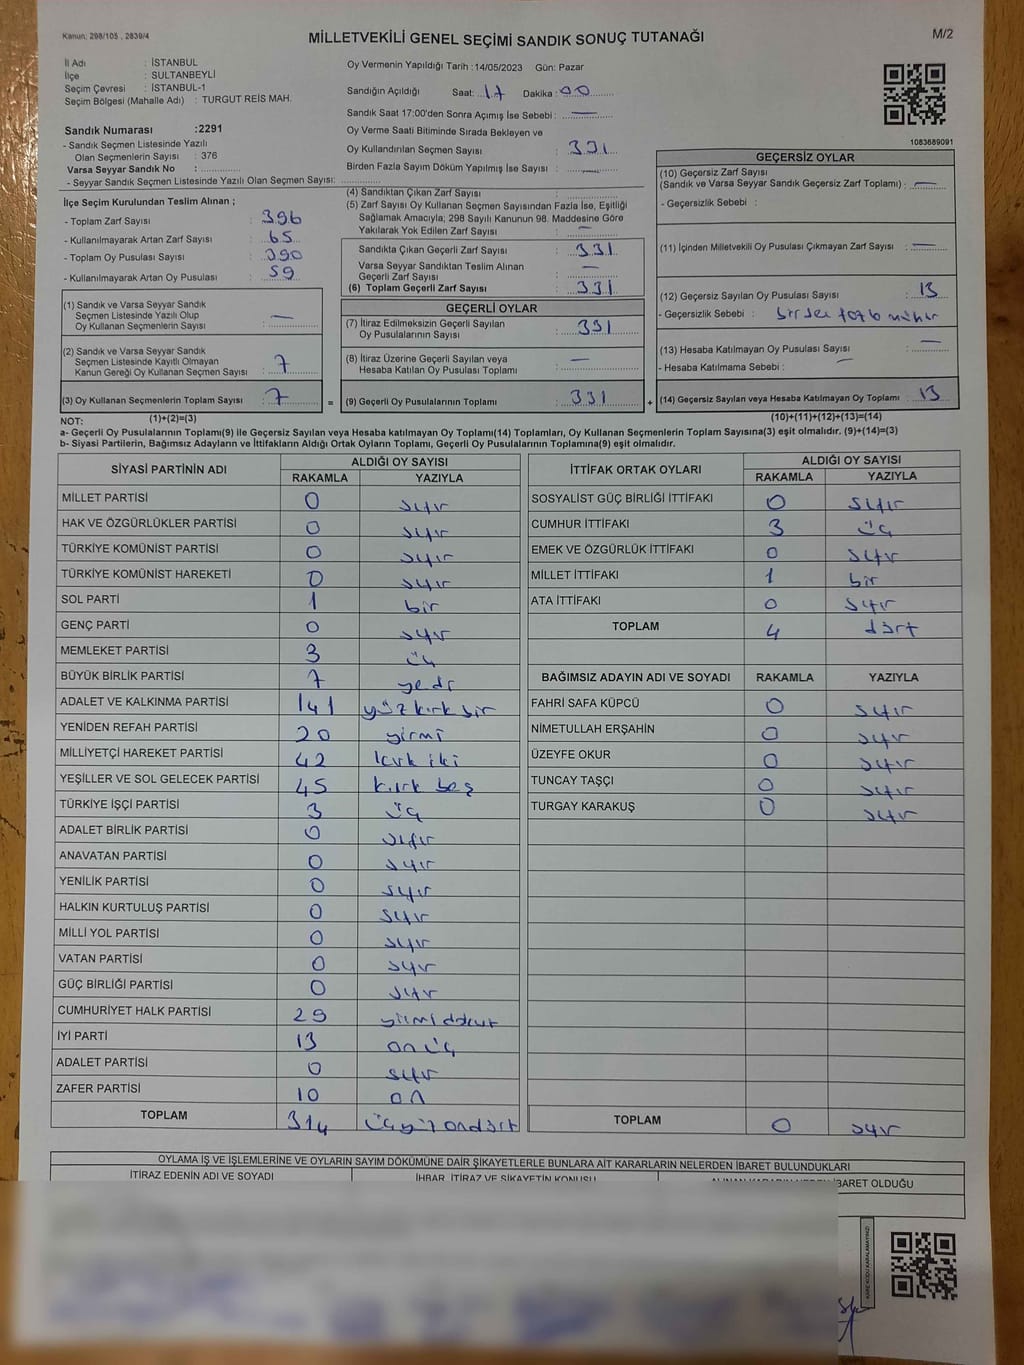 Kanun: 298/105 , 2839/4
MİLLETVEKİLİ GENEL SEÇİMİ SANDIK SONUÇ TUTANAĞI
M/2
İl Adı : İSTANBUL
İlçe : SULTANBEYLİ
Seçim Çevresi : İSTANBUL-1
Seçim Bölgesi (Mahalle Adı) : TURGUT REİS MAH.
Sandık Numarası :2291
- Sandık Seçmen Listesinde Yazılı
Olan Seçmenlerin Sayısı : 376
Varsa Seyyar Sandık No :
- Seyyar Sandık Seçmen Listesinde Yazılı Olan Seçmen Sayısı:
Oy Vermenin Yapıldığı Tarih :14/05/2023 Gün: Pazar
Sandığın Açıldığı Saat: 17 Dakika: 00
Sandık Saat 17:00'den Sonra Açımış İse Sebebi : —
Oy Verme Saati Bitiminde Sırada Bekleyen ve
Oy Kullandırılan Seçmen Sayısı : 331
Birden Fazla Sayım Döküm Yapılmış İse Sayısı : —
1083689091
İlçe Seçim Kurulundan Teslim Alınan ;
- Toplam Zarf Sayısı : 396
- Kullanılmayarak Artan Zarf Sayısı : 65
- Toplam Oy Pusulası Sayısı : 390
- Kullanılmayarak Artan Oy Pusulası : 59
(1) Sandık ve Varsa Seyyar Sandık
Seçmen Listesinde Yazılı Olup
Oy Kullanan Seçmenlerin Sayısı : —
(2) Sandık ve Varsa Seyyar Sandık
Seçmen Listesinde Kayıtlı Olmayan
Kanun Gereği Oy Kullanan Seçmen Sayısı : 7
(3) Oy Kullanan Seçmenlerin Toplam Sayısı : 7
(1)+(2)=(3)
(4) Sandıktan Çıkan Zarf Sayısı :
(5) Zarf Sayısı Oy Kullanan Seçmen Sayısından Fazla İse, Eşitliği
Sağlamak Amacıyla; 298 Sayılı Kanunun 98. Maddesine Göre
Yakılarak Yok Edilen Zarf Sayısı : —
Sandıkta Çıkan Geçerli Zarf Sayısı : 331
Varsa Seyyar Sandıktan Teslim Alınan
Geçerli Zarf Sayısı : —
(6) Toplam Geçerli Zarf Sayısı : 331
GEÇERLİ OYLAR
(7) İtiraz Edilmeksizin Geçerli Sayılan
Oy Pusulalarının Sayısı : 331
(8) İtiraz Üzerine Geçerli Sayılan veya
Hesaba Katılan Oy Pusulası Toplamı : —
= (9) Geçerli Oy Pusulalarının Toplamı : 331 +
GEÇERSİZ OYLAR
(10) Geçersiz Zarf Sayısı
(Sandık ve Varsa Seyyar Sandık Geçersiz Zarf Toplamı) : —
- Geçersizlik Sebebi :
(11) İçinden Milletvekili Oy Pusulası Çıkmayan Zarf Sayısı : —
(12) Geçersiz Sayılan Oy Pusulası Sayısı : 13
- Geçersizlik Sebebi : birden fazla mühür
(13) Hesaba Katılmayan Oy Pusulası Sayısı : —
- Hesaba Katılmama Sebebi : —
(14) Geçersiz Sayılan veya Hesaba Katılmayan Oy Toplamı : 13
(10)+(11)+(12)+(13)=(14)
NOT:
a- Geçerli Oy Pusulalarının Toplamı(9) ile Geçersiz Sayılan veya Hesaba katılmayan Oy Toplamı(14) Toplamları, Oy Kullanan Seçmenlerin Toplam Sayısına(3) eşit olmalıdır. (9)+(14)=(3)
b- Siyasi Partilerin, Bağımsız Adayların ve İttifakların Aldığı Ortak Oyların Toplamı, Geçerli Oy Pusulalarının Toplamına(9) eşit olmalıdır.
SİYASİ PARTİNİN ADI ALDIĞI OY SAYISI
RAKAMLA YAZIYLA
MİLLET PARTİSİ 0 sıfır
HAK VE ÖZGÜRLÜKLER PARTİSİ 0 sıfır
TÜRKİYE KOMÜNİST PARTİSİ 0 sıfır
TÜRKİYE KOMÜNİST HAREKETİ 0 sıfır
SOL PARTİ 1 bir
GENÇ PARTİ 0 sıfır
MEMLEKET PARTİSİ 3 üç
BÜYÜK BİRLİK PARTİSİ 7 yedi
ADALET VE KALKINMA PARTİSİ 141 yüz kırk bir
YENİDEN REFAH PARTİSİ 20 yirmi
MİLLİYETÇİ HAREKET PARTİSİ 42 kırk iki
YEŞİLLER VE SOL GELECEK PARTİSİ 45 kırk beş
TÜRKİYE İŞÇİ PARTİSİ 3 üç
ADALET BİRLİK PARTİSİ 0 sıfır
ANAVATAN PARTİSİ 0 sıfır
YENİLİK PARTİSİ 0 sıfır
HALKIN KURTULUŞ PARTİSİ 0 sıfır
MİLLİ YOL PARTİSİ 0 sıfır
VATAN PARTİSİ 0 sıfır
GÜÇ BİRLİĞİ PARTİSİ 0 sıfır
CUMHURİYET HALK PARTİSİ 29 yirmi dokuz
İYİ PARTİ 13 on üç
ADALET PARTİSİ 0 sıfır
ZAFER PARTİSİ 10 on
TOPLAM 314 üçyüz ondört
İTTİFAK ORTAK OYLARI ALDIĞI OY SAYISI
RAKAMLA YAZIYLA
SOSYALİST GÜÇ BİRLİĞİ İTTİFAKI 0 sıfır
CUMHUR İTTİFAKI 3 üç
EMEK VE ÖZGÜRLÜK İTTİFAKI 0 sıfır
MİLLET İTTİFAKI 1 bir
ATA İTTİFAKI 0 sıfır
TOPLAM 4 dört
BAĞIMSIZ ADAYIN ADI VE SOYADI RAKAMLA YAZIYLA
FAHRİ SAFA KÜPCÜ 0 sıfır
NİMETULLAH ERŞAHİN 0 sıfır
ÜZEYFE OKUR 0 sıfır
TUNCAY TAŞÇI 0 sıfır
TURGAY KARAKUŞ 0 sıfır
TOPLAM 0 sıfır
OYLAMA İŞ VE İŞLEMLERİNE VE OYLARIN SAYIM DÖKÜMÜNE DAİR ŞİKAYETLERLE BUNLARA AİT KARARLARIN NELERDEN İBARET BULUNDUKLARI
İTİRAZ EDENİN ADI VE SOYADI İHBAR, İTİRAZ VE ŞİKAYETİN KONUSU İBARET OLDUĞU
KARE KODU KARALAMAYINIZ!